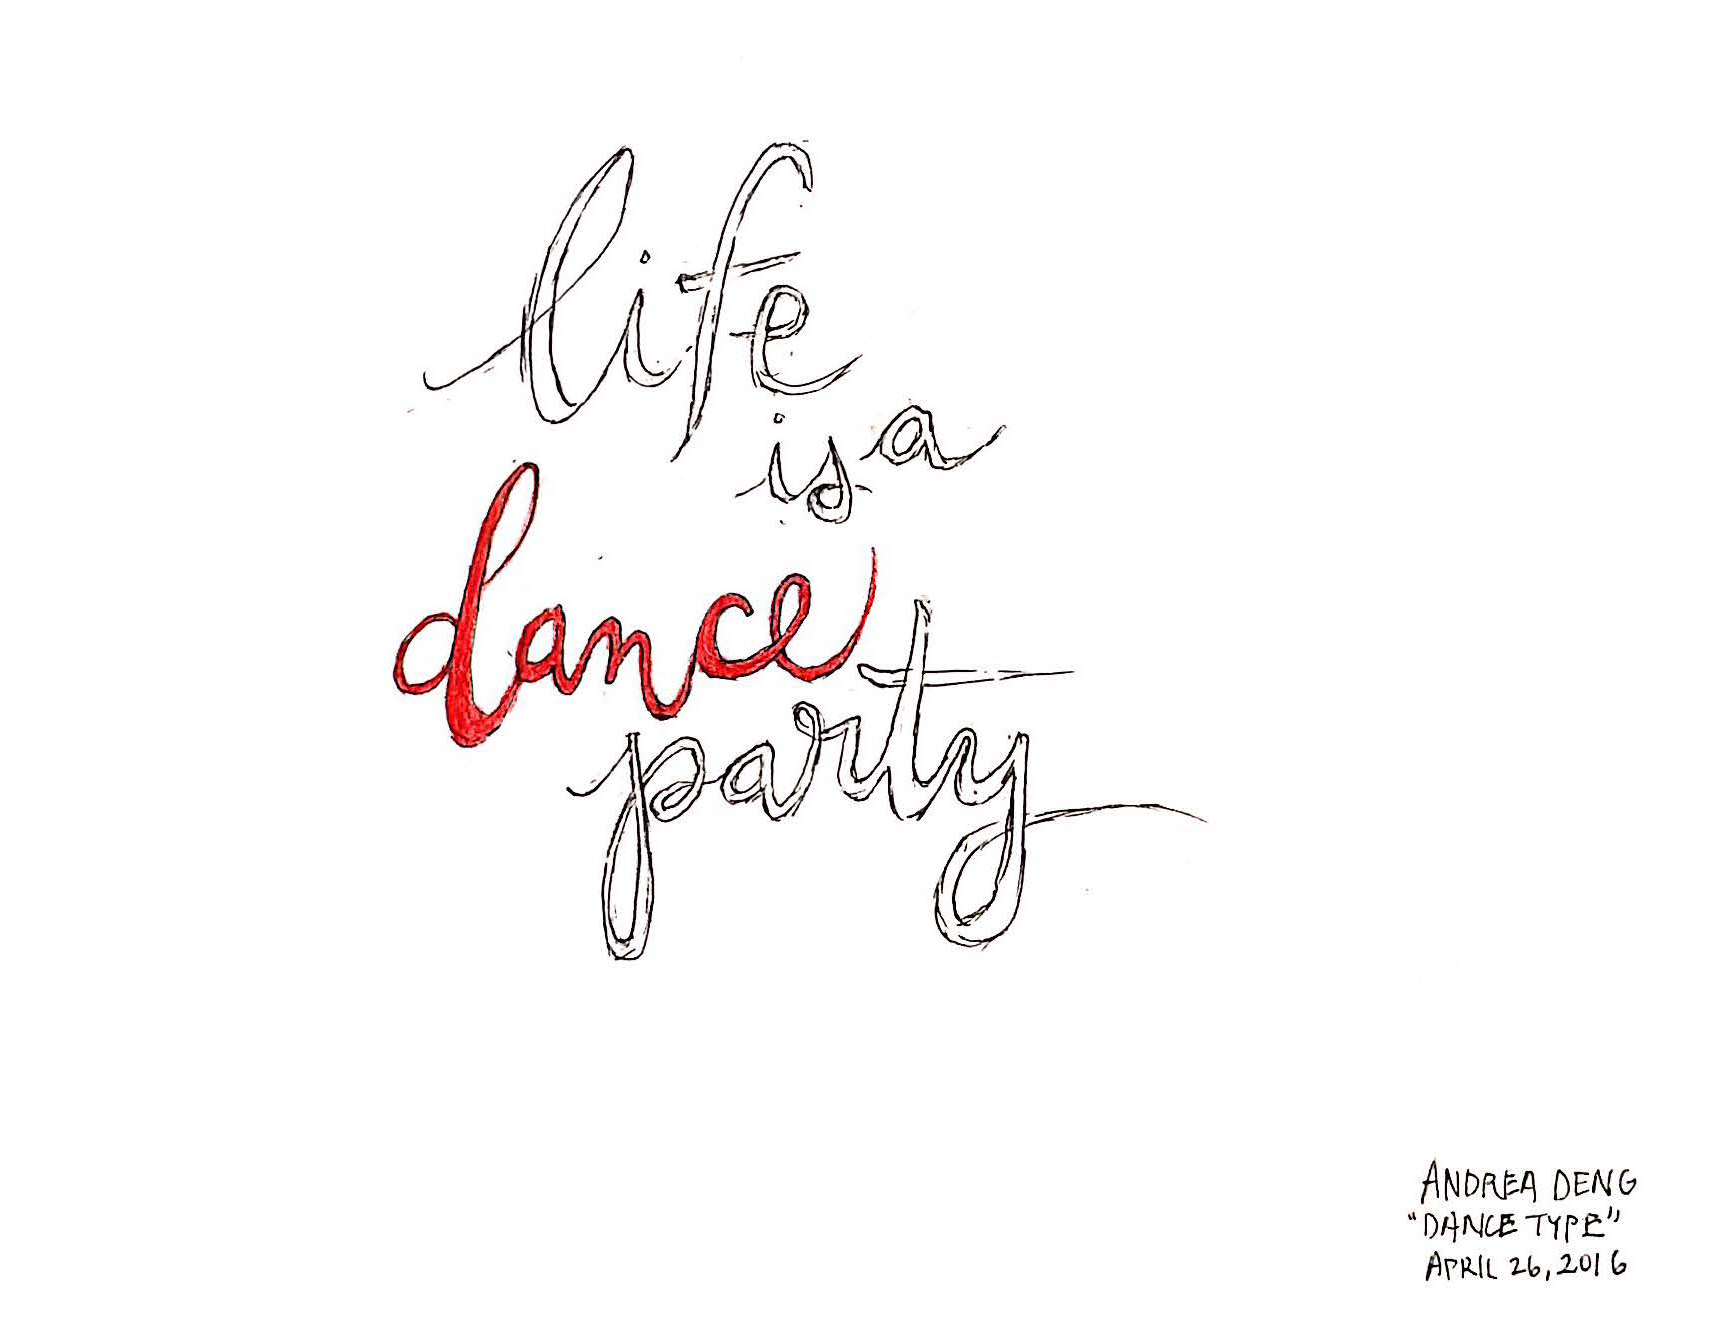 life
is a
dance
party
ANDREA DENG
"DANCE TYPE"
APRIL 26, 2016